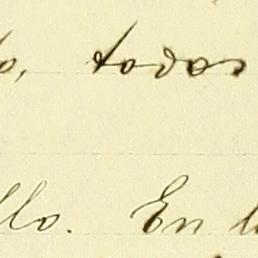 todos
llo. En